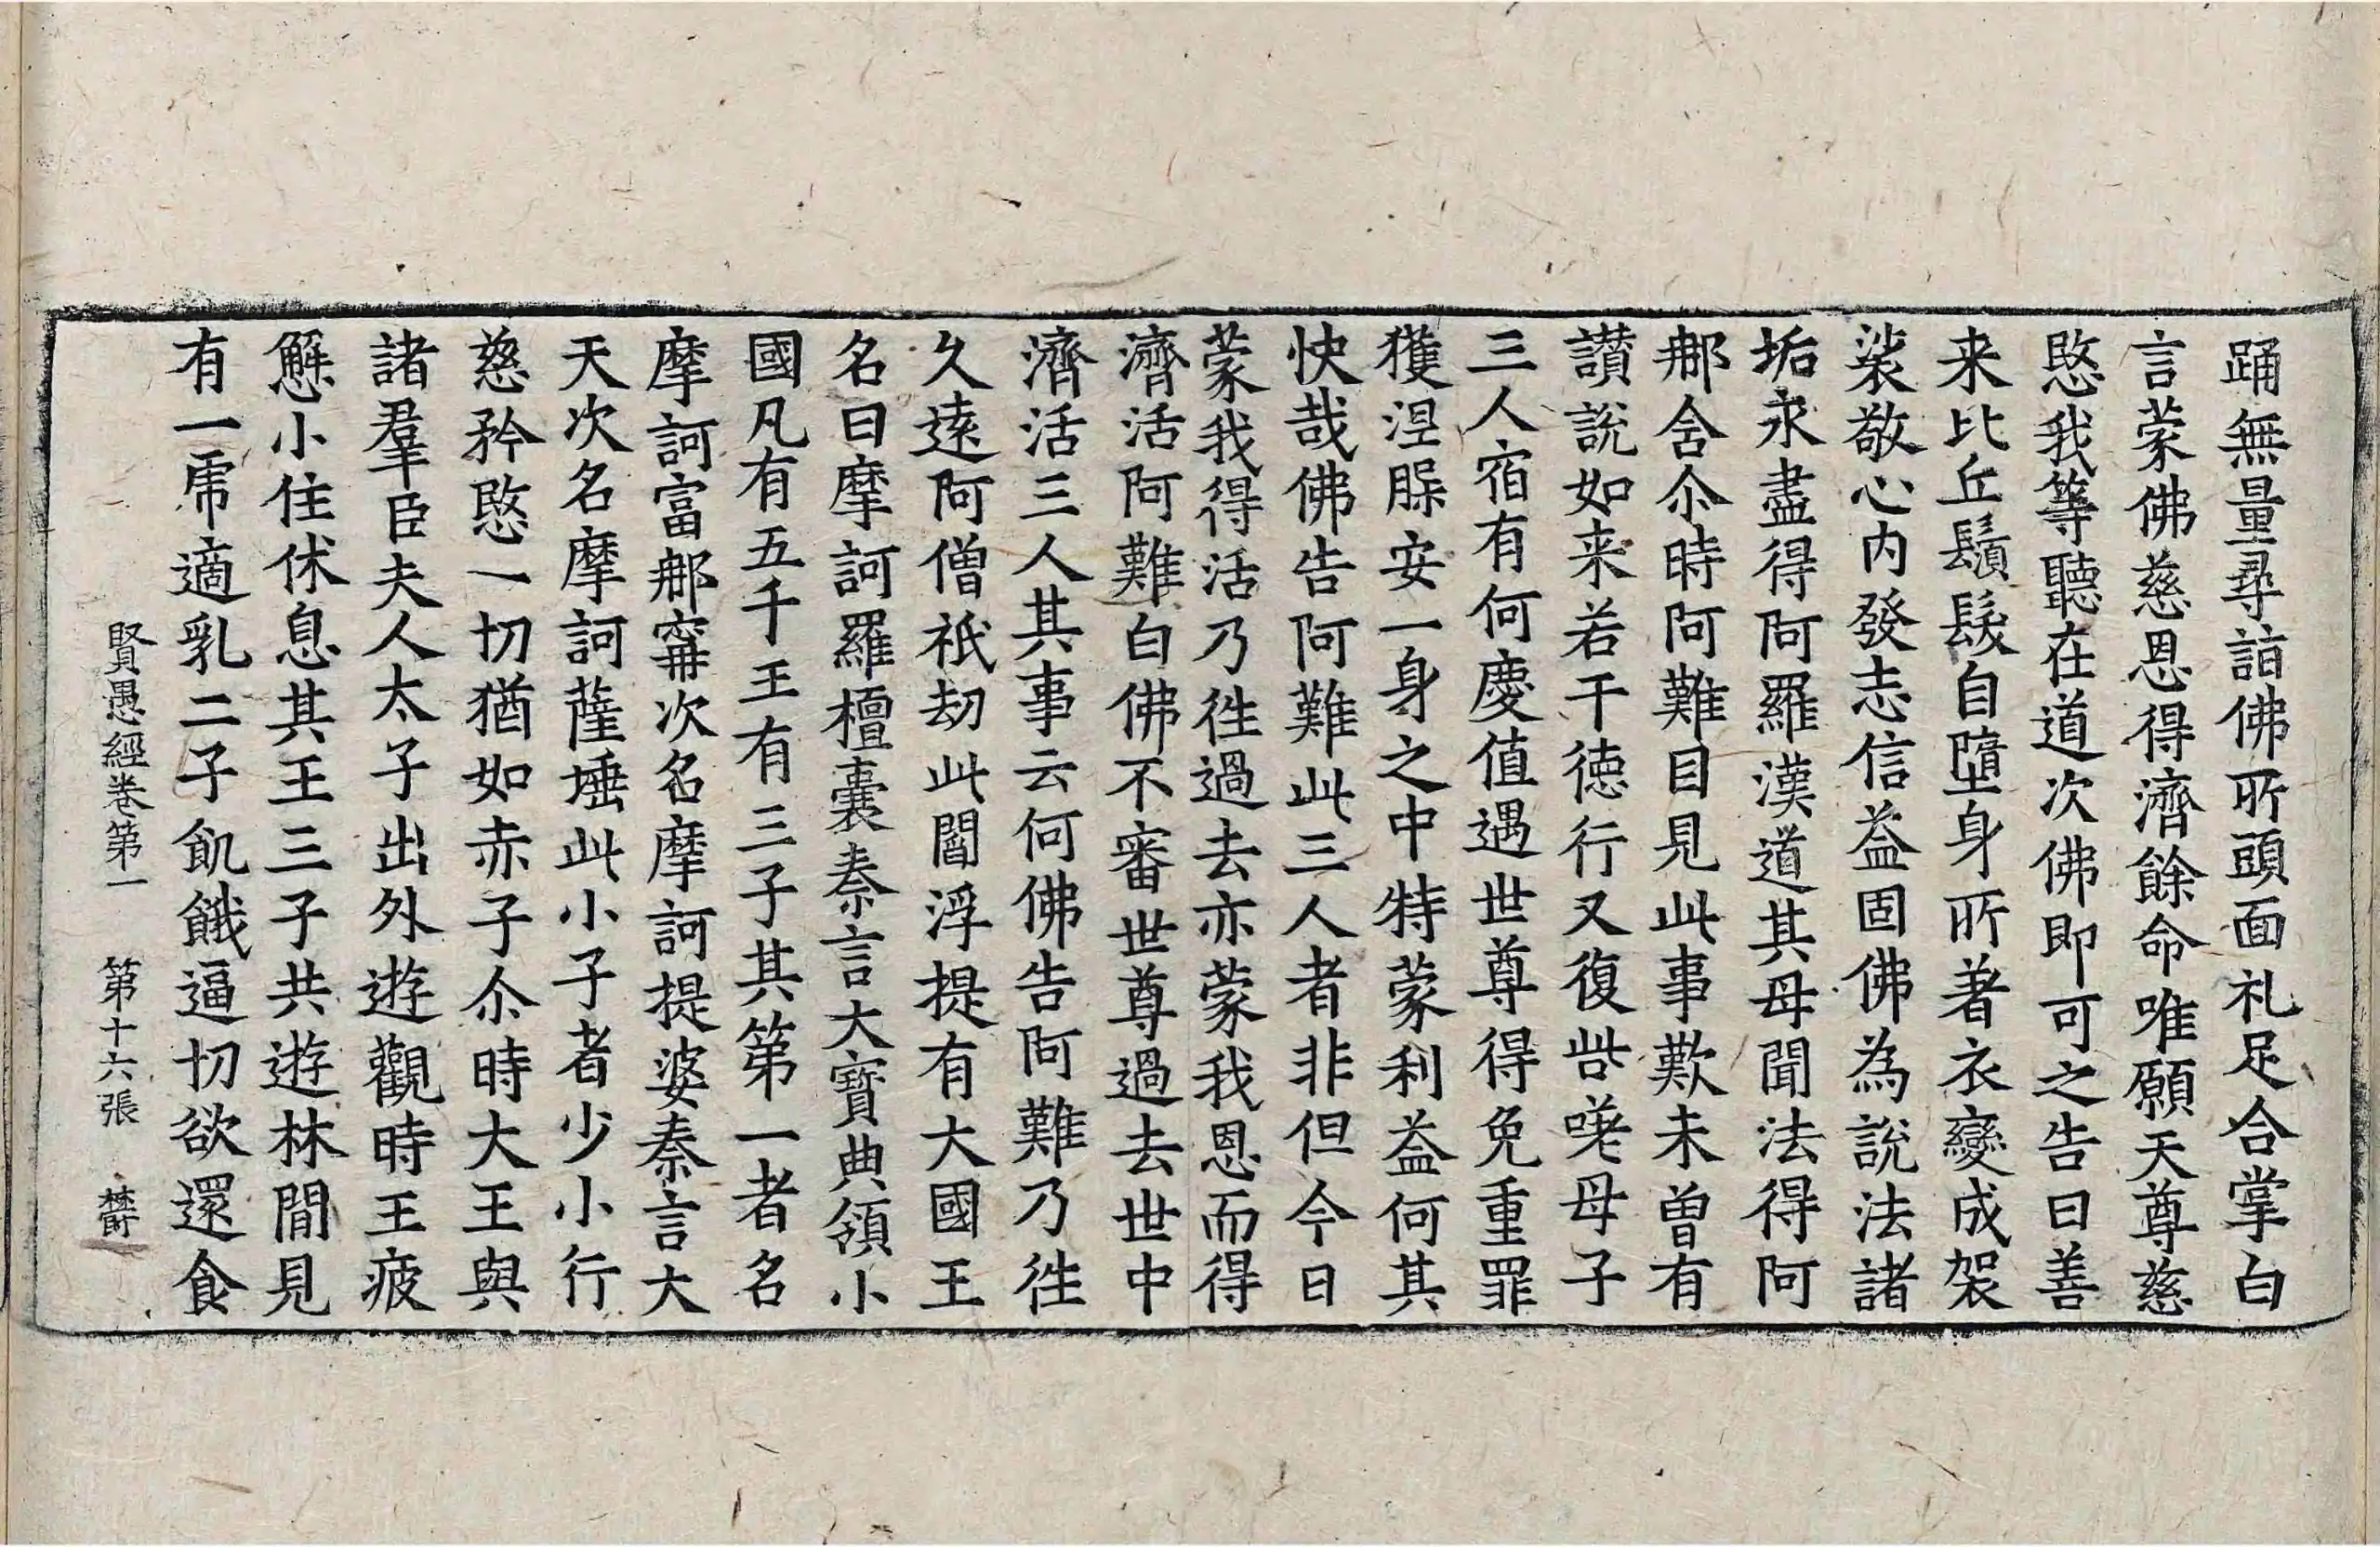 踊無量尋詣佛所頭面礼足合掌白
言蒙佛慈恩得濟餘命唯願天尊慈
愍我等聽在道次佛即可之告曰善
来比丘鬚髮自墮身所著衣變成袈
裟敬心內發志信益固佛為說法諸
垢永盡得阿羅漢道其母聞法得阿
那含尒時阿難目見此事歎未曾有
讃說如来若干德行又復咨嗟母子
三人宿有何慶值遇世尊得免重罪
獲涅槃安一身之中特蒙利益何其
快哉佛告阿難此三人者非但今日
蒙我得活乃往過去亦蒙我恩而得
濟活阿難白佛不審世尊過去世中
濟活三人其事云何佛告阿難乃往
久遠阿僧祇劫此閻浮提有大國王
名曰摩訶羅檀囊秦言大寶典領小
國凡有五千王有三子其第一者名
摩訶富那寗次名摩訶提婆秦言大
天次名摩訶薩埵此小子者少小行
慈矜愍一切猶如赤子尒時大王與
諸羣臣夫人太子出外遊觀時王疲
懈小住休息其王三子共遊林間見
有一虎適乳二子飢餓逼切欲還食
賢愚經卷第一　第十六張　欝